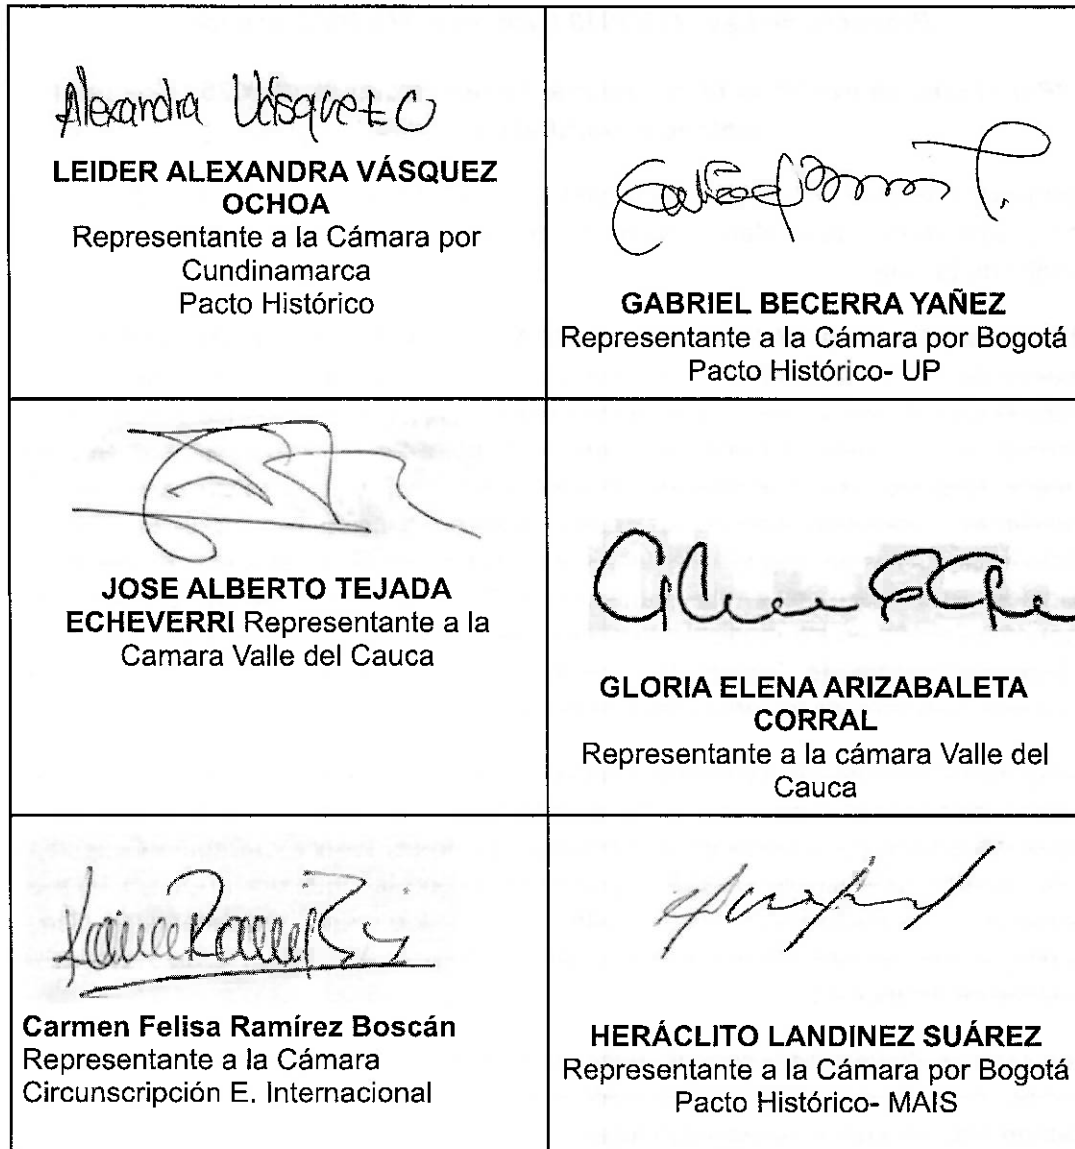 Alexandra Vásquez O
LEIDER ALEXANDRA VÁSQUEZ
OCHOA
Representante a la Cámara por
Cundinamarca
Pacto Histórico
GABRIEL BECERRA YAÑEZ
Representante a la Cámara por Bogotá
Pacto Histórico- UP
JOSE ALBERTO TEJADA
ECHEVERRI Representante a la
Camara Valle del Cauca
GLORIA ELENA ARIZABALETA
CORRAL
Representante a la cámara Valle del
Cauca
Carmen Felisa Ramírez Boscán
Representante a la Cámara
Circunscripción E. Internacional
HERÁCLITO LANDINEZ SUÁREZ
Representante a la Cámara por Bogotá
Pacto Histórico- MAIS